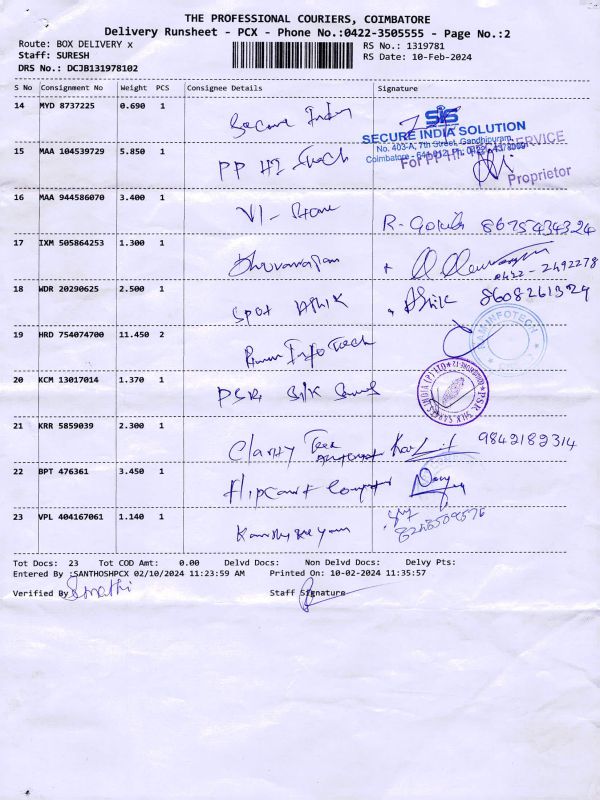 THE PROFESSIONAL COURIERS, COIMBATORE
Delivery Runsheet - PCX - Phone No.:0422-3505555 - Page No.:2
Route: BOX DELIVERY x RS No.: 1319781
Staff: SURESH RS Date: 10-Feb-2024
DRS No.: DCJB131978102
S No Consignment No Weight PCS Consignee Details Signature
14 MYD 8737225 0.690 1 Secure India
SIS
SECURE INDIA SOLUTION
No. 403-A, 7th Street, Gandhipuram
Coimbatore - 641 012.
15 MAA 104539729 5.850 1 PP Hi Tech
For PP HI- SERVICE
Proprietor
16 MAA 944586070 3.400 1 VI - R. Gokul 8675434324
17 IXM 505864253 1.300 1 0422-2492278
18 WDR 20290625 2.500 1 Spot Ashik Ashik 8608261329
19 HRD 754074700 11.450 2 InfoTech
M INFOTECH
20 KCM 13017014 1.370 1 PSR Silk
PSR SILK SAREES INDIA (P) LTD
21 KRR 5859039 2.300 1 Clarity 9842182314
22 BPT 476361 3.450 1 Flipcart Computer
23 VPL 404167061 1.140 1
Tot Docs: 23 Tot COD Amt: 0.00 Delvd Docs: Non Delvd Docs: Delvy Pts:
Entered By :SANTHOSHPCX 02/10/2024 11:23:59 AM Printed On: 10-02-2024 11:35:57
Verified By Staff Signature